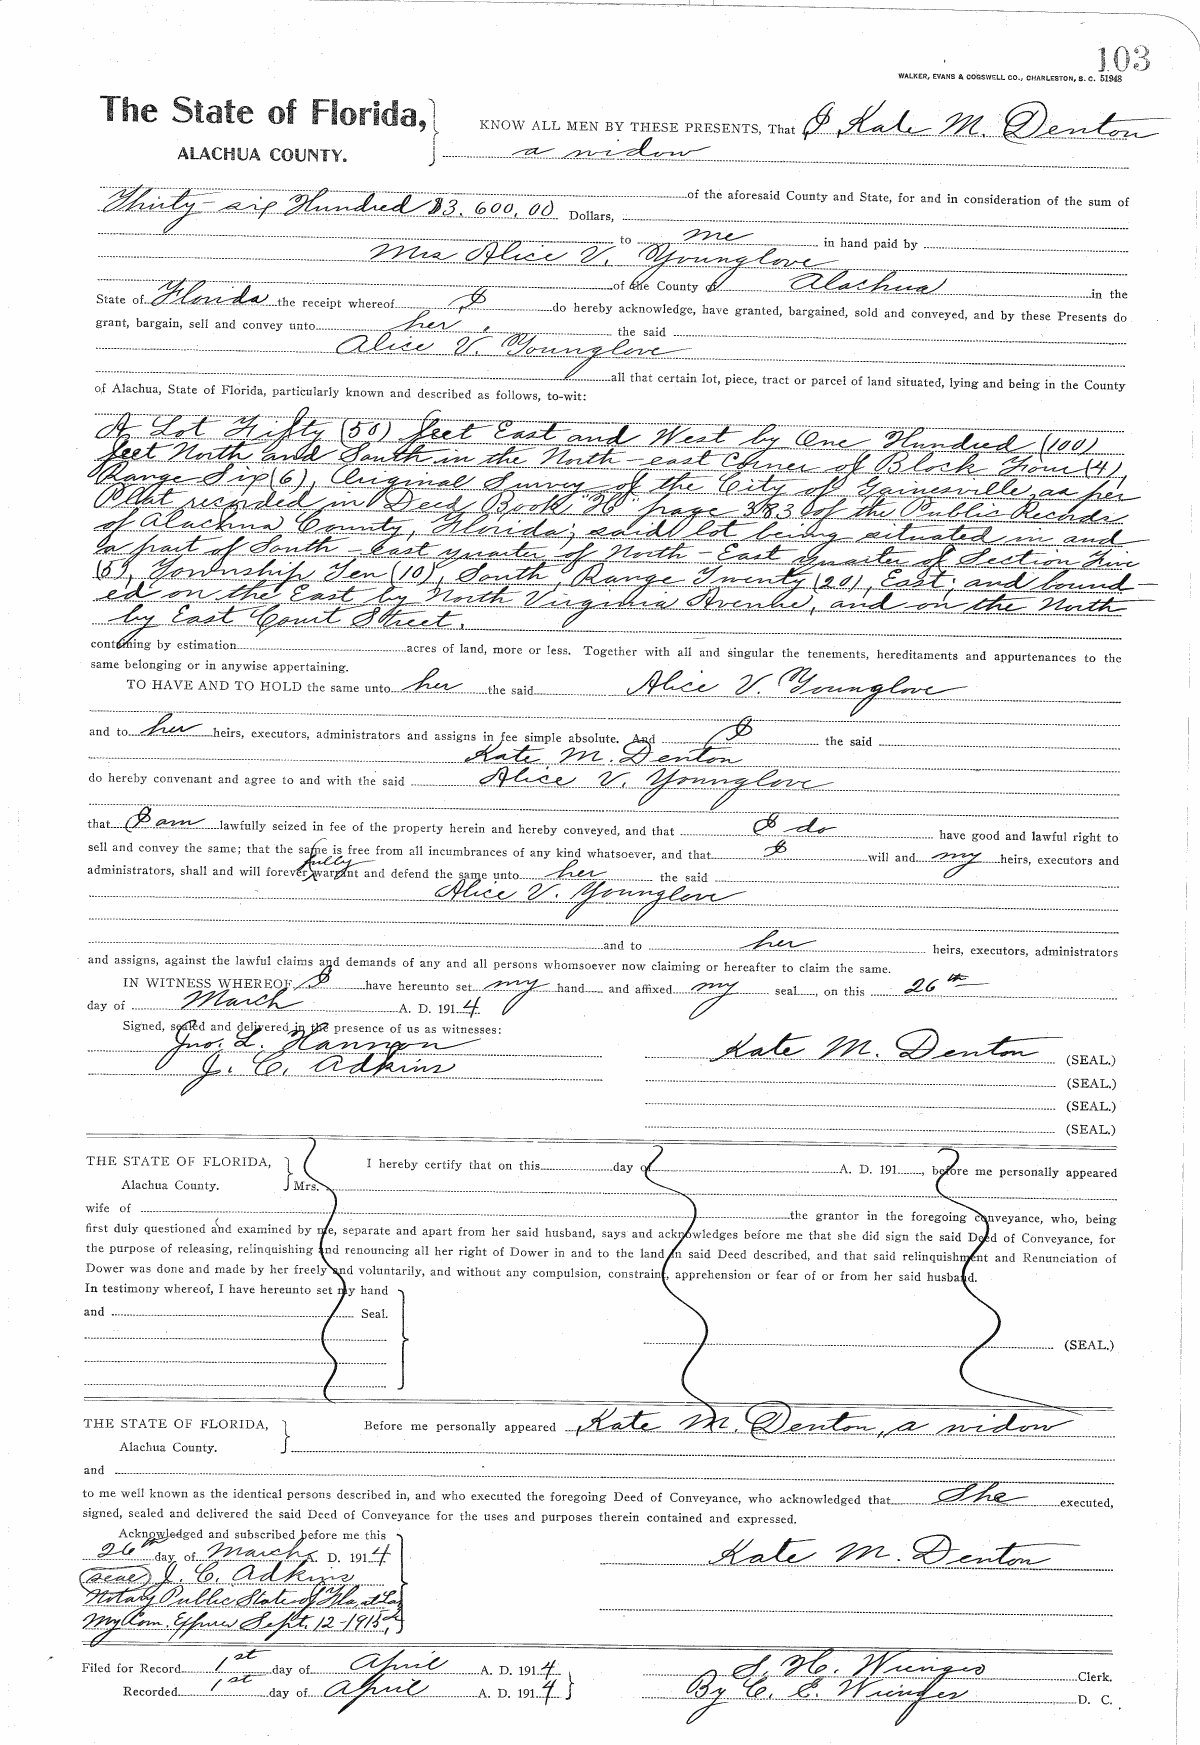 103
WALKER, EVANS & COGSWELL CO., CHARLESTON, S. C. 51948
The State of Florida,
ALACHUA COUNTY.
KNOW ALL MEN BY THESE PRESENTS, That I Kate M. Denton
a widow
of the aforesaid County and State, for and in consideration of the sum of
Thirty-six Hundred $3.600,00 Dollars,
to me in hand paid by
Mrs Alice V. Younglove
of the County of Alachua in the
State of Florida the receipt whereof I do hereby acknowledge, have granted, bargained, sold and conveyed, and by these Presents do
grant, bargain, sell and convey unto her, the said
Alice V. Younglove
all that certain lot, piece, tract or parcel of land situated, lying and being in the County
of Alachua, State of Florida, particularly known and described as follows, to-wit:
A Lot Fifty (50) feet East and West by One Hundred (100)
feet North and South in the North-east Corner of Block Four (4),
Range Six (6), Original Survey of the City of Gainesville, as per
Plat recorded in Deed Book "H" page 383 of the Public Records
of Alachua County, Florida; said lot being situated in and
a part of South-east quarter of North-East quarter of Section Five
(5), Township Ten (10), South, Range Twenty (20), East; and bound-
ed on the East by North Virginia Avenue, and on the North
by East Court Street.
containing by estimation acres of land, more or less. Together with all and singular the tenements, hereditaments and appurtenances to the
same belonging or in anywise appertaining.
TO HAVE AND TO HOLD the same unto her the said Alice V. Younglove
and to her heirs, executors, administrators and assigns in fee simple absolute. And I the said
Kate M. Denton
do hereby convenant and agree to and with the said Alice V. Younglove
that I am lawfully seized in fee of the property herein and hereby conveyed, and that I do have good and lawful right to
sell and convey the same; that the same is free from all incumbrances of any kind whatsoever, and that I will and my heirs, executors and
fully
administrators, shall and will forever warrant and defend the same unto her the said
Alice V. Younglove
and to her heirs, executors, administrators
and assigns, against the lawful claims and demands of any and all persons whomsoever now claiming or hereafter to claim the same.
IN WITNESS WHEREOF, I have hereunto set my hand and affixed my seal, on this 26th
day of March A. D. 1914.
Signed, sealed and delivered in the presence of us as witnesses:
Jno. L. Hannon
J. C. Adkins
Kate M. Denton (SEAL.)
(SEAL.)
(SEAL.)
(SEAL.)
THE STATE OF FLORIDA,
Alachua County.
I hereby certify that on this day of A. D. 191 , before me personally appeared
Mrs.
wife of the grantor in the foregoing conveyance, who, being
first duly questioned and examined by me, separate and apart from her said husband, says and acknowledges before me that she did sign the said Deed of Conveyance, for
the purpose of releasing, relinquishing and renouncing all her right of Dower in and to the land in said Deed described, and that said relinquishment and Renunciation of
Dower was done and made by her freely and voluntarily, and without any compulsion, constraint, apprehension or fear of or from her said husband.
In testimony whereof, I have hereunto set my hand
and Seal.
(SEAL.)
THE STATE OF FLORIDA,
Alachua County.
Before me personally appeared Kate M. Denton, a widow
and
to me well known as the identical persons described in, and who executed the foregoing Deed of Conveyance, who acknowledged that She executed,
signed, sealed and delivered the said Deed of Conveyance for the uses and purposes therein contained and expressed.
Acknowledged and subscribed before me this
26th day of March A. D. 1914
(seal) J. C. Adkins
Notary Public State of Fla, at
My Com. Expires Sept. 12-1915
Kate M. Denton
Filed for Record 1st day of April A. D. 1914
Recorded 1st day of April A. D. 1914
S. H. Wienges Clerk.
By C. E. Wienges D. C.